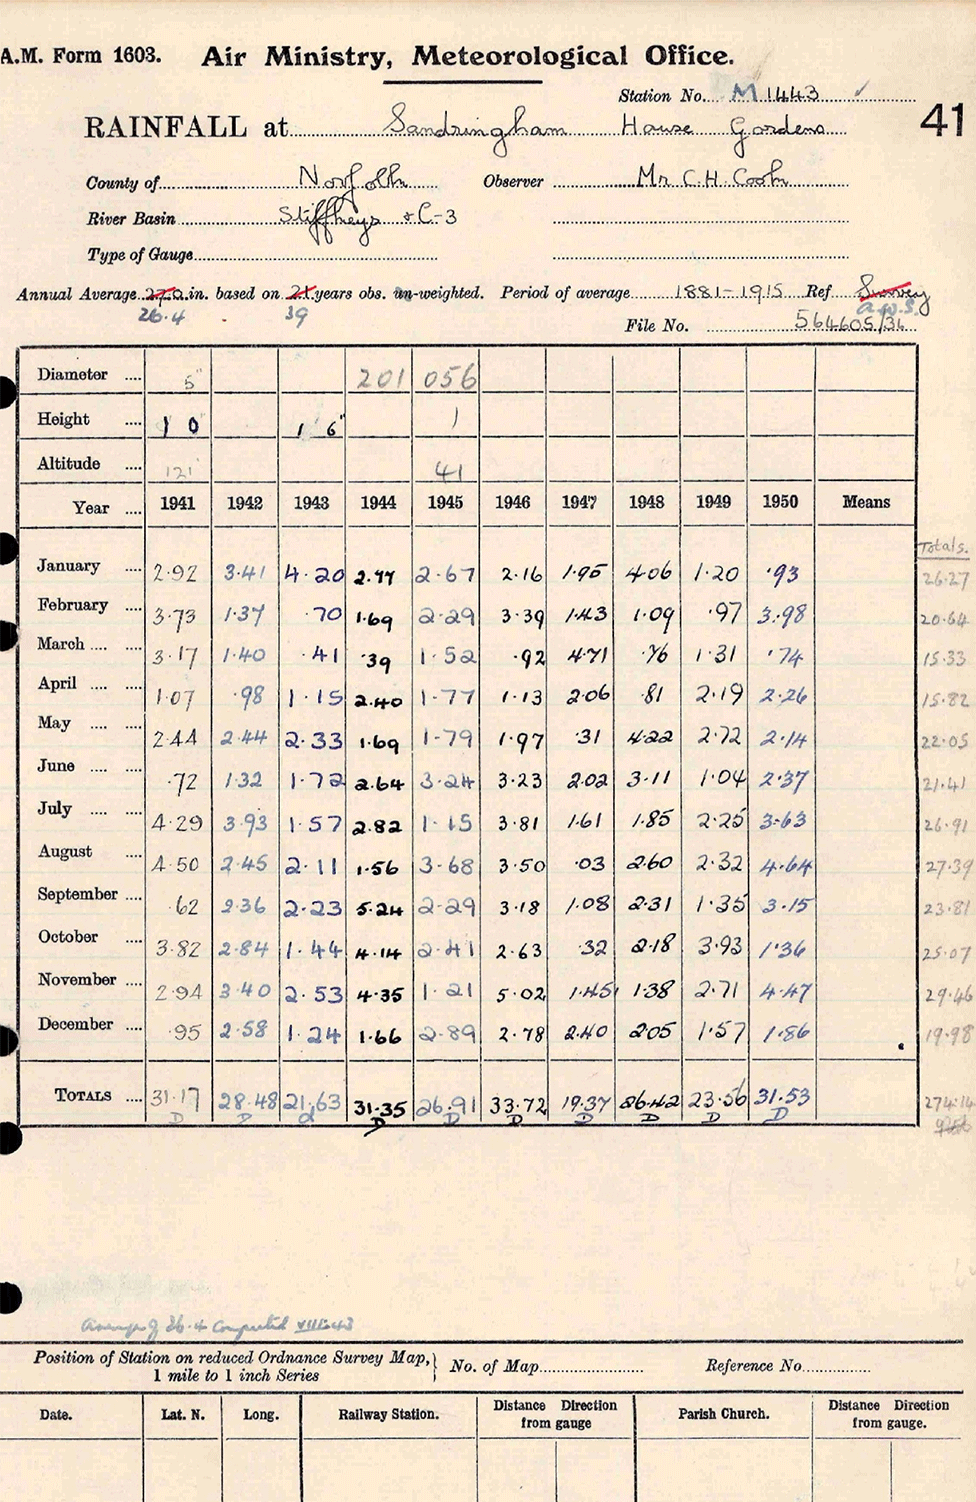 A.M. Form 1603. Air Ministry, Meteorological Office.
Station No. M 1443 ✓
41
RAINFALL at Sandringham House Gardens
County of Norfolk Observer Mr C.H. Cook
River Basin Stiffkeys & C-3
Type of Gauge
Annual Average 27.0 in. based on 21 years obs. un-weighted. Period of average 1881-1915 Ref Survey
26.4 39 a.w.s.
File No. 564605/36
Diameter .... 5" 201 056
Height .... 1 0" 1 6" 1
Altitude .... 121' 41
Year .... 1941 1942 1943 1944 1945 1946 1947 1948 1949 1950 Means
Totals.
January .... 2.92 3.41 4.20 2.77 2.67 2.16 1.95 4.06 1.20 .93 26.27
February .... 3.73 1.37 .70 1.69 2.29 3.39 1.43 1.09 .97 3.98 20.64
March .... .... 3.17 1.40 .41 .39 1.52 .92 4.71 .76 1.31 .74 15.33
April .... .... 1.07 .98 1.15 2.40 1.77 1.13 2.06 .81 2.19 2.26 15.82
May .... .... 2.44 2.44 2.33 1.69 1.79 1.97 .31 4.22 2.72 2.14 22.05
June .... .... .72 1.32 1.72 2.64 3.24 3.23 2.02 3.11 1.04 2.37 21.41
July .... .... 4.29 3.93 1.57 2.82 1.15 3.81 1.61 1.85 2.25 3.63 26.91
August .... 4.50 2.45 2.11 1.56 3.68 3.50 .03 2.60 2.32 4.64 27.39
September .... .62 2.36 2.23 5.24 2.29 3.18 1.08 2.31 1.35 3.15 23.81
October .... 3.82 2.84 1.44 4.14 2.41 2.63 .32 2.18 3.93 1.36 25.07
November .... 2.94 3.40 2.53 4.35 1.21 5.02 1.45 1.38 2.71 4.47 29.46
December .... .95 2.58 1.24 1.66 2.89 2.78 2.40 2.05 1.57 1.86 19.98
TOTALS .... 31.17 28.48 21.63 31.35 26.91 33.72 19.37 26.42 23.56 31.53 274.14
D D d D D D D D D D
Average of 26.4 Computed VIII.43
Position of Station on reduced Ordnance Survey Map, } No. of Map Reference No.
1 mile to 1 inch Series
Date. Lat. N. Long. Railway Station. Distance from gauge Direction Parish Church. Distance from gauge. Direction